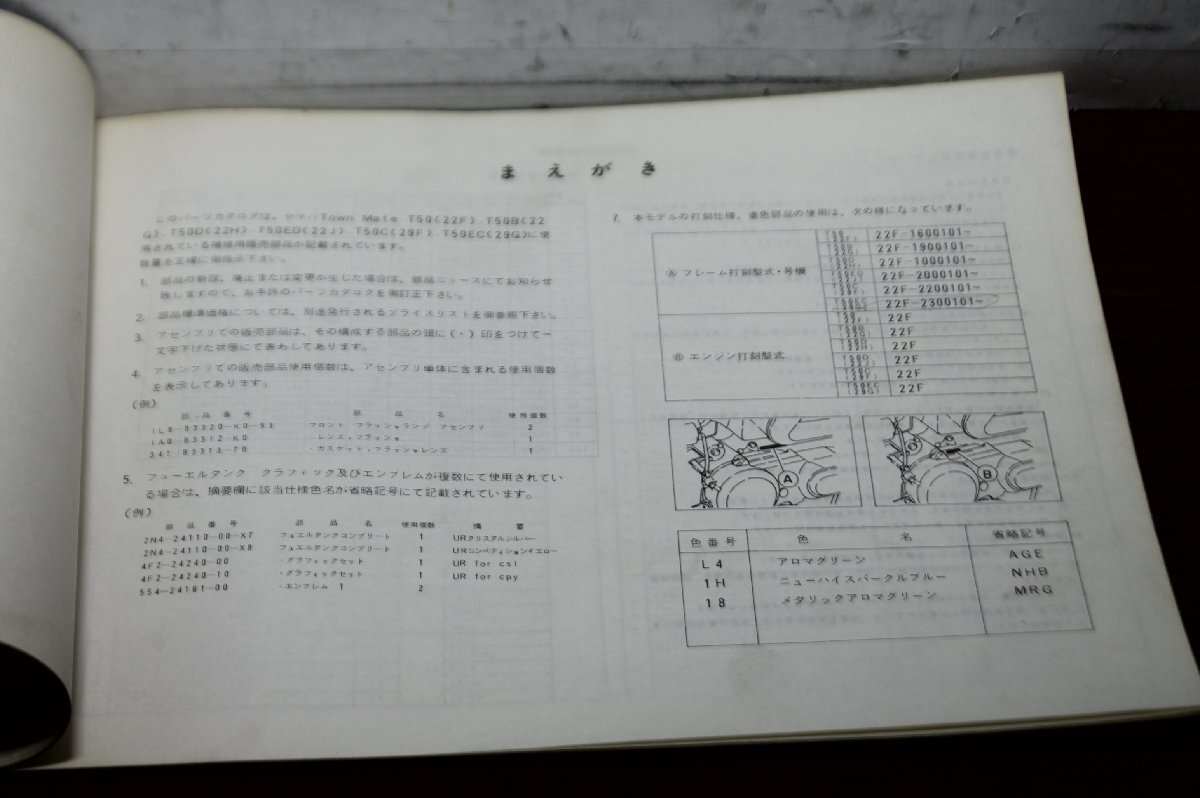 まえがき
このパーツカタログは、ヤマハTown Mate T50(22F).T50B(22
G).T50D(22H).T50ED(22J).T50C(29F).T50EC(29G)に使
用されている補修用販売部品が記載されています。
数量を正確に御指示下さい。
1. 部品の新設、廃止または変更が生じた場合は、部品ニュースにてお知らせ
致しますので、お手許のパーツカタログを御訂正下さい。
2. 部品標準価格については、別途発行されるプライスリストを御参照下さい。
3. アセンブリでの販売部品は、その構成する部品の頭に(・)印をつけて一
文字下げた状態にて表わしてあります。
4. アセンブリでの販売部品使用個数は、アセンブリ単体に含まれる使用個数
を表示してあります。
(例)
部品番号 部品名 使用個数
1L9-83320-K0-93 フロント フラッシャランプ アセンブリ 2
1A0-83312-K0 ・レンズ,フラッシャ 1
341-83313-70 ・ガスケット,フラッシャレンズ 1
5. フューエルタンク グラフィック及びエンブレムが複数にて使用されてい
る場合は、摘要欄に該当仕様色名が省略記号にて記載されています。
(例)
部品番号 部品名 使用個数 摘要
2N4-24110-00-X7 フュエルタンクコンプリート 1 URクリスタルシルバー
2N4-24110-00-X8 フュエルタンクコンプリート 1 URコンペティションイエロー
4F2-24240-00 ・グラフィックセット 1 UR for csl
4F2-24240-10 ・グラフィックセット 1 UR for cpy
554-24161-00 ・エンブレム 1 2
7. 本モデルの打刻仕様、塗色部品の使用は、次の様になっています。
Ⓐ フレーム打刻型式・号機
T50 (22F) 22F-1600101~
T50B (22G) 22F-1900101~
T50D (22H) 22F-1000101~
T50ED (22J) 22F-2000101~
T50C (29F) 22F-2200101~
T50EC (29G) 22F-2300101~
Ⓑ エンジン打刻型式
T50 (22F) 22F
T50B (22G) 22F
T50D (22H) 22F
T50D (22J) 22F
T50C (29F) 22F
T50EC (29G) 22F
A
B
色番号 色名 省略記号
L4 アロマグリーン AGE
1H ニューハイスパークルブルー NHB
18 メタリックアロマグリーン MRG